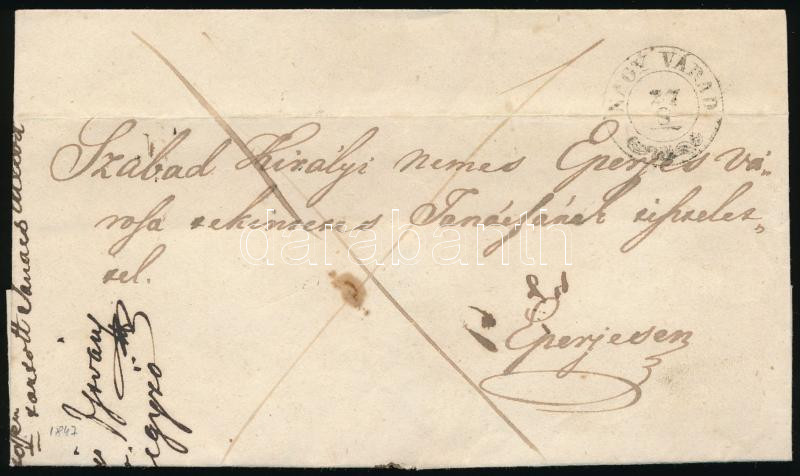 NAGY VÁRAD
27
8
Szabad Királyi nemes Eperjes vá-
rossa tekintetes Tanácsának tisztelet-
tel.
Eperjesen
tartott Tanács
István
jegyző
1847
darabanth